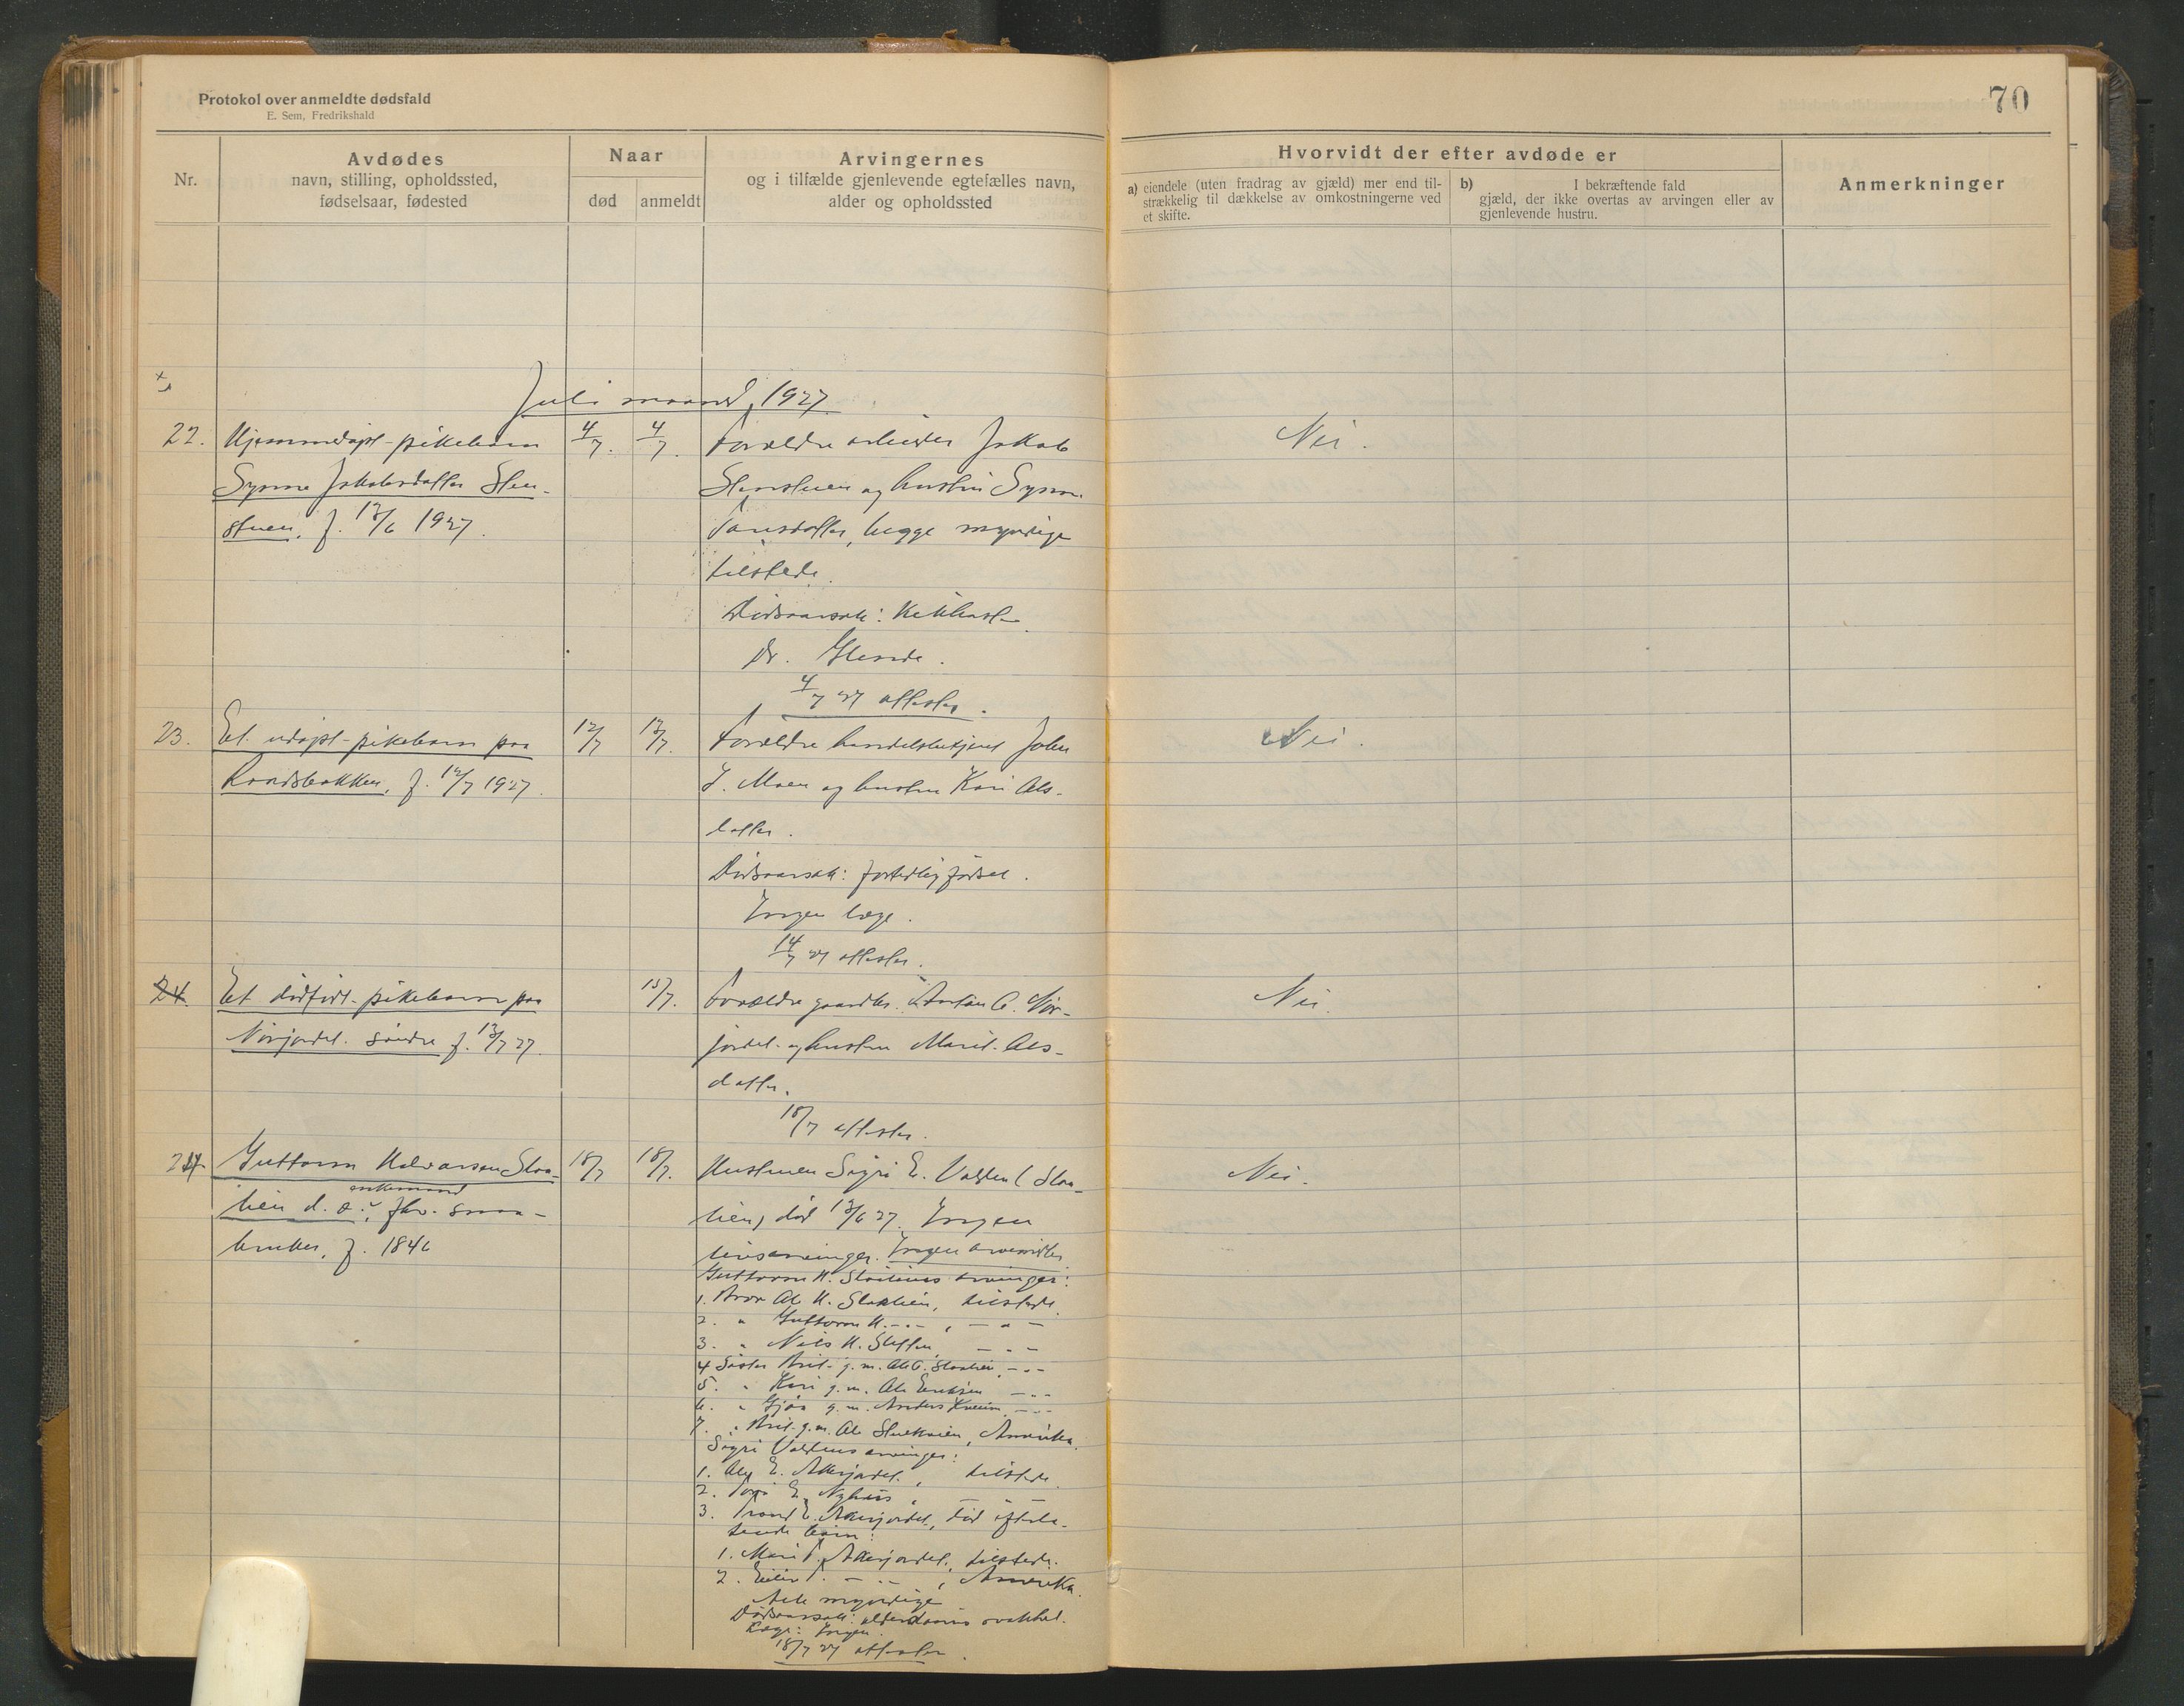 Protokol over anmeldte dødsfald
E. Sem, Fredrikshald
70
Nr.
Avdødes
navn, stilling, opholdssted,
fødselsaar, fødested
Naar
død
anmeldt
Arvingernes
og i tilfælde gjenlevende egtefælles navn,
alder og opholdssted
Hvorvidt der efter avdøde er
a) eiendele (uten fradrag av gjæld) mer end til-
strækkelig til dækkelse av omkostningerne ved
et skifte.
b) I bekræftende fald
gjæld, der ikke overtas av arvingen eller av
gjenlevende hustru.
Anmerkninger
Juli maaned 1927
22. Hjemmedøpt pikebarn
Synne Jakobsdatter Sten-
stuen, f. 13/6 1927.
4/7. 4/7.
Forældre arbeider Jakob
Stenstuen og hustru Synne
datter, begge myndige
tilstede.
Dødsaarsak: Kikhoste
Dr.
4/7 27 attester.
Nei.
23. Et udøpt pikebarn paa
Randsbakken, f. 12/7 1927.
12/7 13/7.
Forældre handelsbetjent John
J. Moen og hustru Kari Ols-
datter.
Dødsaarsak: fortidlig fødsel.
Ingen læge.
14/7 27 attester.
Nei.
24. Et dødfødt pikebarn paa
Nørjordet søndre f. 13/7 27.
15/7.
Forældre gaardbr. O. Nør-
jordet og hustru Marit Ols-
datter.
18/7 attester.
Nei.
24. Guttorm Halvorsen Slaa-
lien d. e., enkemand fhv. smaa-
bruker, f. 1846
18/7 18/7.
Hustruen Sigri E. Valden (Slaa-
lien) død 13/6 27. Ingen
livsarvinger. Ingen
Guttorm H. Slaaliens arvinger:
1. Bror Ole H. Slaalien, tilstede.
2. " Guttorm H. -"-, -"-
3. " Nils H. -"-
4 Søster Brit g. m. Ole Slaalien, -"-
5. " Kari g. m. Ole Eriksen -"-
6. " g. m. Anders -"-
7. " Brit g. m. Ole Amerika.
Sigri Valdens arvinger:
1. E. Akerjordet, tilstede
2. E. Nyhus, - " -
3. Trond E. Akerjordet, død efterla-
tende barn:
1. Mari T. Akerjordet, tilstede.
2. T. -"-, Amerika.
Alle myndige
Dødsaarsak: alderdoms svakhet.
Læge: Ingen.
18/7 27 attester.
Nei.